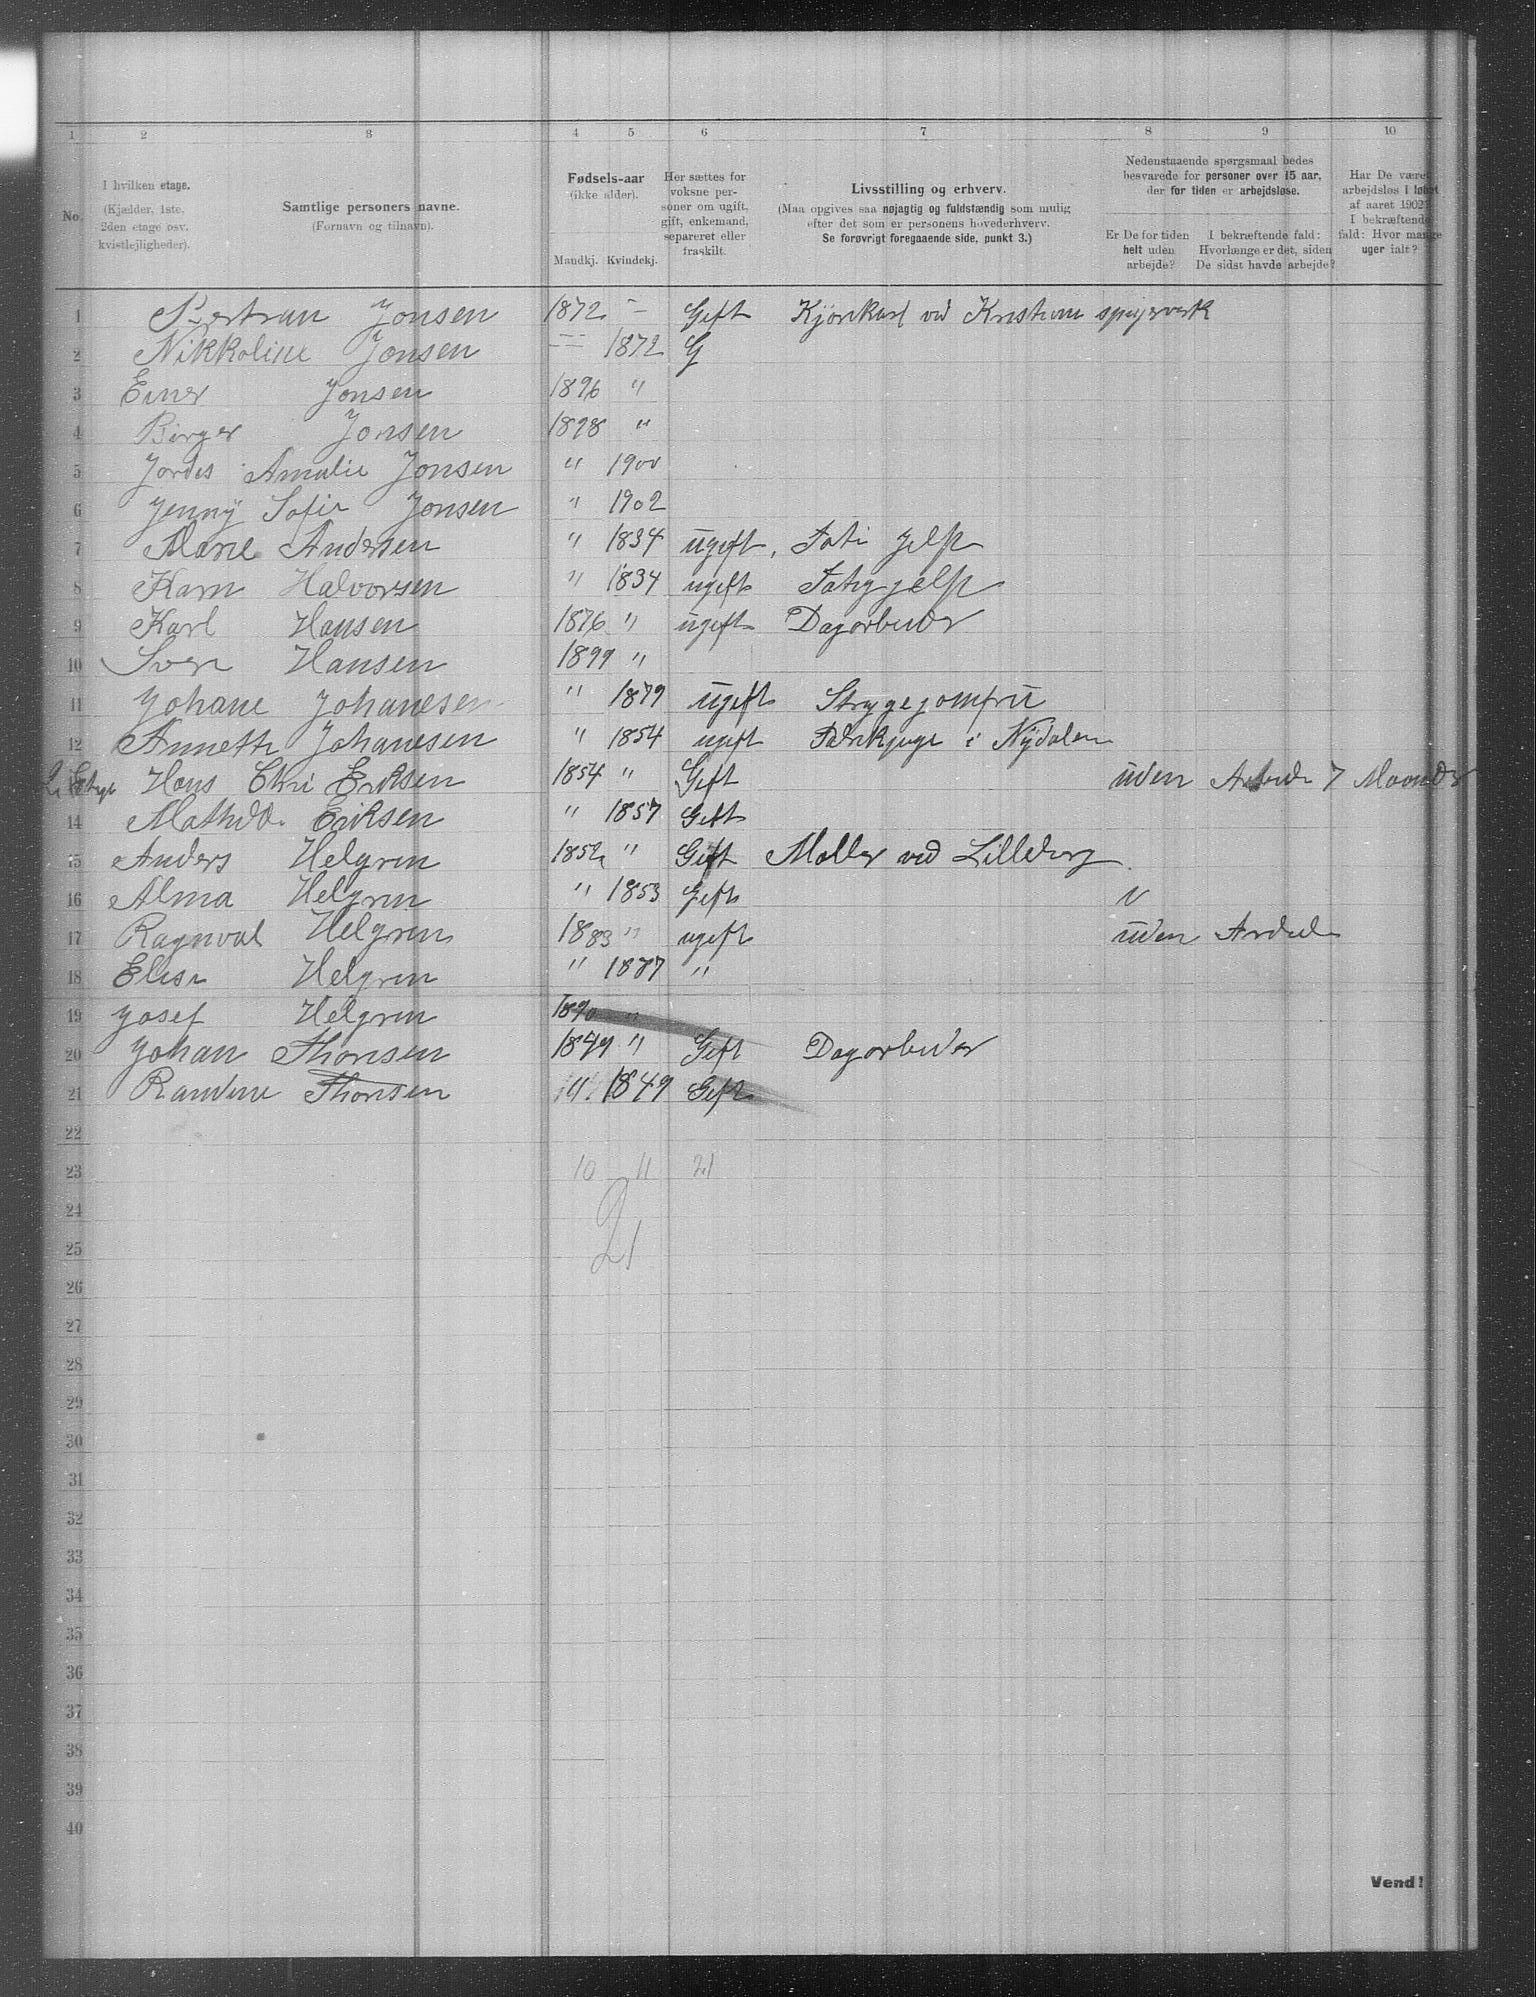 1 2 3 4 5 6 7 8 9 10
No.
I hvilken etage.
(Kjælder, 1ste,
2den etage osv.
kvistlejligheder).
Samtlige personers navne.
(Fornavn og tilnavn).
Fødsels-aar
(ikke alder).
Mandkj. Kvindekj.
Her sættes for
voksne per-
soner om ugift,
gift, enkemand,
separeret eller
fraskilt.
Livsstilling og erhverv.
(Maa opgives saa nøjagtig og fuldstændig som mulig
efter det som er personens hovederhverv.
Se forøvrigt foregaaende side, punkt 3.)
Nedenstaaende spørgsmaal bedes
besvarede for personer over 15 aar,
der for tiden er arbejdsløse.
Er De for tiden
helt uden
arbejde?
I bekræftende fald:
Hvorlænge er det, siden
De sidst havde arbejde?
Har De været
arbejdsløs i løbet
af aaret 1902?
I bekræftende
fald: Hvor mange
uger ialt?
1 Bertran Jonsen 1872 - Gift Kjørekarl ved Kristiania spigerverk
2 Nikkoline Jonsen 1872 G
3 Einer Jonsen 1896 "
4 Birger Jonsen 1898 "
5 Jordis Amalie Jonsen " 1900
6 Jenny Sofie Jonsen " 1902
7 Marie Andersen " 1834 ugift, Fati Jelp
8 Karn Halvorsen " 1834 ugift Fatigjelp
9 Karl Hansen 1876 " ugift Dagarbeider
10 Sven Hansen 1899 "
11 Johane Johanesen " 1879 ugift Strygejomfru
12 Annette Johanesen " 1854 ugift Fabrikpige i Nydalen
2 Etage Hans Chri Eriksen 1854 " Gift uden Arbeide 7 Maaneder
14 Mathilde Eriksen " 1857 Gift
15 Anders Helgren 1852 " Gift Møller ved Lilleborg
16 Alma Helgren " 1853 Gift
17 Ragnval Helgren 1883 " ugift uden Arbeide
18 Elise Helgren " 1887 "
19 Josef Helgren 1890 "
20 Johan Thorisen 1849 " Gift Dagarbeider
21 Randine Thorisen " 1849 Gift
22
23 10 11 21
24
21
25
26
27
28
29
30
31
32
33
34
35
36
37
38
39
40
Vend!